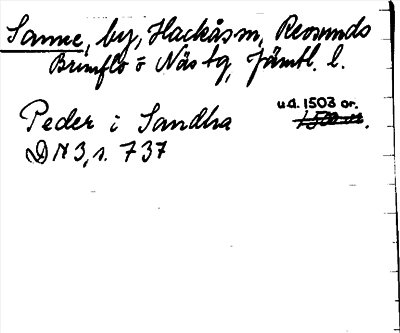 Sanne, by, Hackås sn, Revsunds
Brunflo o Näs tg, Jämtl. l.
Peder i Sandha
u.d. 1503 or.
DN 3, s. 737